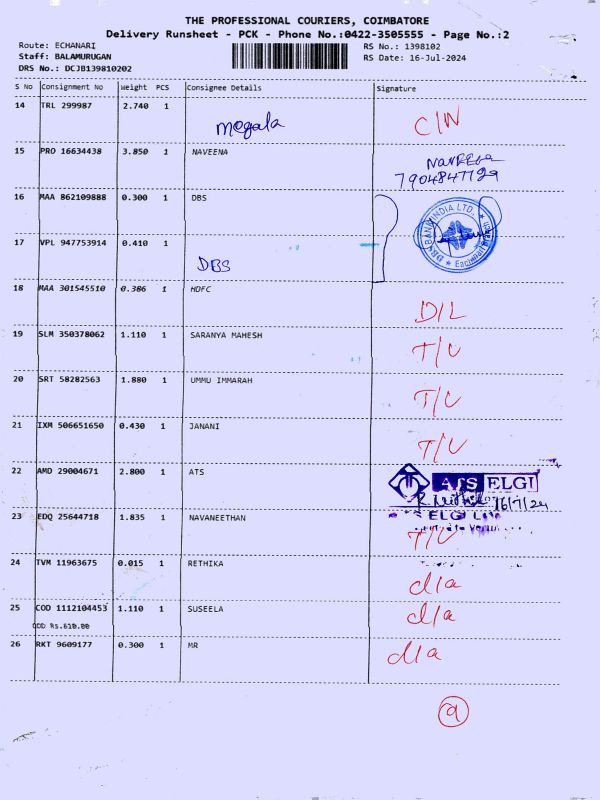 THE PROFESSIONAL COURIERS, COIMBATORE
Delivery Runsheet - PCK - Phone No.:0422-3505555 - Page No.:2
Route: ECHANARI
RS No.: 1398102
Staff: BALAMURUGAN
RS Date: 16-Jul-2024
DRS No.: DCJB139810202
S No Consignment No Weight PCS Consignee Details Signature
14 TRL 299987 2.740 1
Mogala C/N
15 PRO 16634438 3.850 1 NAVEENA Naveena
7904847729
16 MAA 862109888 0.300 1 DBS
DBS BANK INDIA LTD.,
17 VPL 947753914 0.410 1
DBS
18 MAA 301545510 0.386 1 HDFC
D/L
19 SLM 350378062 1.110 1 SARANYA MAHESH T/C
20 SRT 58282563 1.880 1 UMMU IMMARAH T/C
21 IXM 506651650 0.430 1 JANANI T/C
22 AMD 29004671 2.800 1 ATS ATS ELGI
16/7/24
23 EDQ 25644718 1.835 1 NAVANEETHAN ELGI
T/C
24 TVM 11963675 0.015 1 RETHIKA d/a
25 COD 1112104453 1.110 1 SUSEELA d/a
COD Rs.610.00
26 RKT 9609177 0.300 1 MR d/a
9